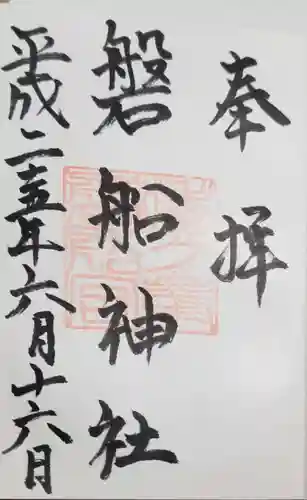 奉拝
磐船神社
平成二十五年六月十六月